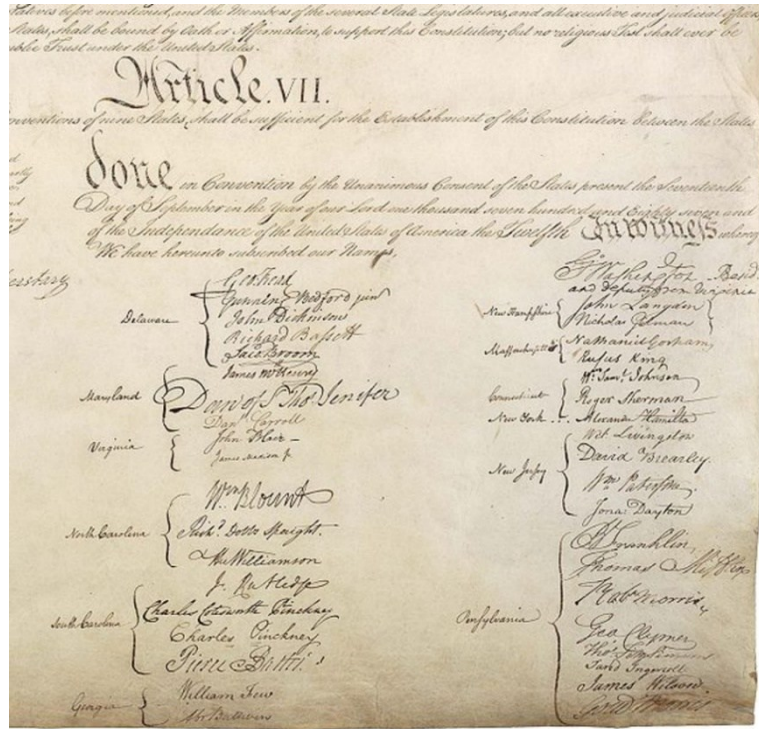 tatives before mentioned, and the Members of the several State Legislatures, and all executive and judicial Officers,
States, shall be bound by Oath or Affirmation, to support this Constitution; but no religious Test shall ever be
ublic Trust under the United States.
Article. VII.
nventions of nine States, shall be sufficient for the Establishment of this Constitution between the States
done in Convention by the Unanimous Consent of the States present the Seventeenth
Day of September in the Year of our Lord one thousand seven hundred and Eighty seven and
of the Independance of the United States of America the Twelfth In witness whereof
We have hereunto subscribed our Names,
Delaware
Geo: Read
Gunning Bedford jun
John Dickinson
Richard Bassett
Jaco: Broom
Maryland
James McHenry
Dan of St Thos. Jenifer
Danl Carroll
Virginia
John Blair —
James Madison Jr
North Carolina
Wm Blount
Richd. Dobbs Spaight.
Hu Williamson
South Carolina
J. Rutledge
Charles Cotesworth Pinckney
Charles Pinckney
Pierce Butler.
Georgia
William Few
Abr Baldwin
Go. Washington Presidt
and deputy from Virginia
New Hampshire
John Langdon
Nicholas Gilman
Massachusetts
Nathaniel Gorham
Rufus King
Connecticut
Wm. Saml. Johnson
Roger Sherman
New York . . . Alexander Hamilton
New Jersey
Wil: Livingston
David Brearley.
Wm Paterson.
Jona: Dayton
Pensylvania
B Franklin
Thomas Mifflin
Robt Morris
Geo. Clymer
Thos. FitzSimons
Jared Ingersoll
James Wilson.
Gouv Morris